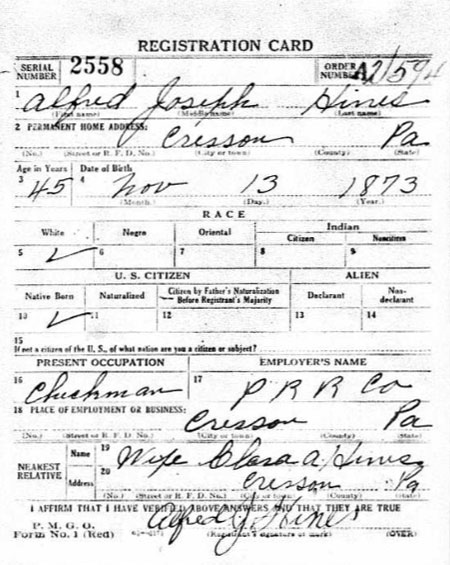 REGISTRATION CARD
SERIAL NUMBER 2558 ORDER NUMBER A21594
1 Alfred Joseph Hines
(First name) (Middle name) (Last name)
2 PERMANENT HOME ADDRESS:
Cresson Pa
(No.) (Street or R. F. D. No.) (City or town) (County) (State)
Age in Years Date of Birth
3 45 4 Nov 13 1873
(Month.) (Day.) (Year.)
RACE
White Negro Oriental Indian
Citizen Noncitizen
5 6 7 8 9
U. S. CITIZEN ALIEN
Native Born Naturalized Citizen by Father's Naturalization Before Registrant's Majority Declarant Non-declarant
10 11 12 13 14
15
If not a citizen of the U. S., of what nation are you a citizen or subject?
PRESENT OCCUPATION EMPLOYER'S NAME
16 17 P R R Co
18 PLACE OF EMPLOYMENT OR BUSINESS:
Cresson Pa
(No.) (Street or R. F. D. No.) (City or town) (County) (State)
NEAREST RELATIVE Name 19 Wife Clara A. Hines
Address 20 Cresson Pa
(No.) (Street or R. F. D. No.) (City or town) (County) (State)
I AFFIRM THAT I HAVE VERIFIED ABOVE ANSWERS AND THAT THEY ARE TRUE
P. M. G. O.
Form No. 1 (Red) Alfred J. Hines
(Registrant's signature or mark) (OVER)